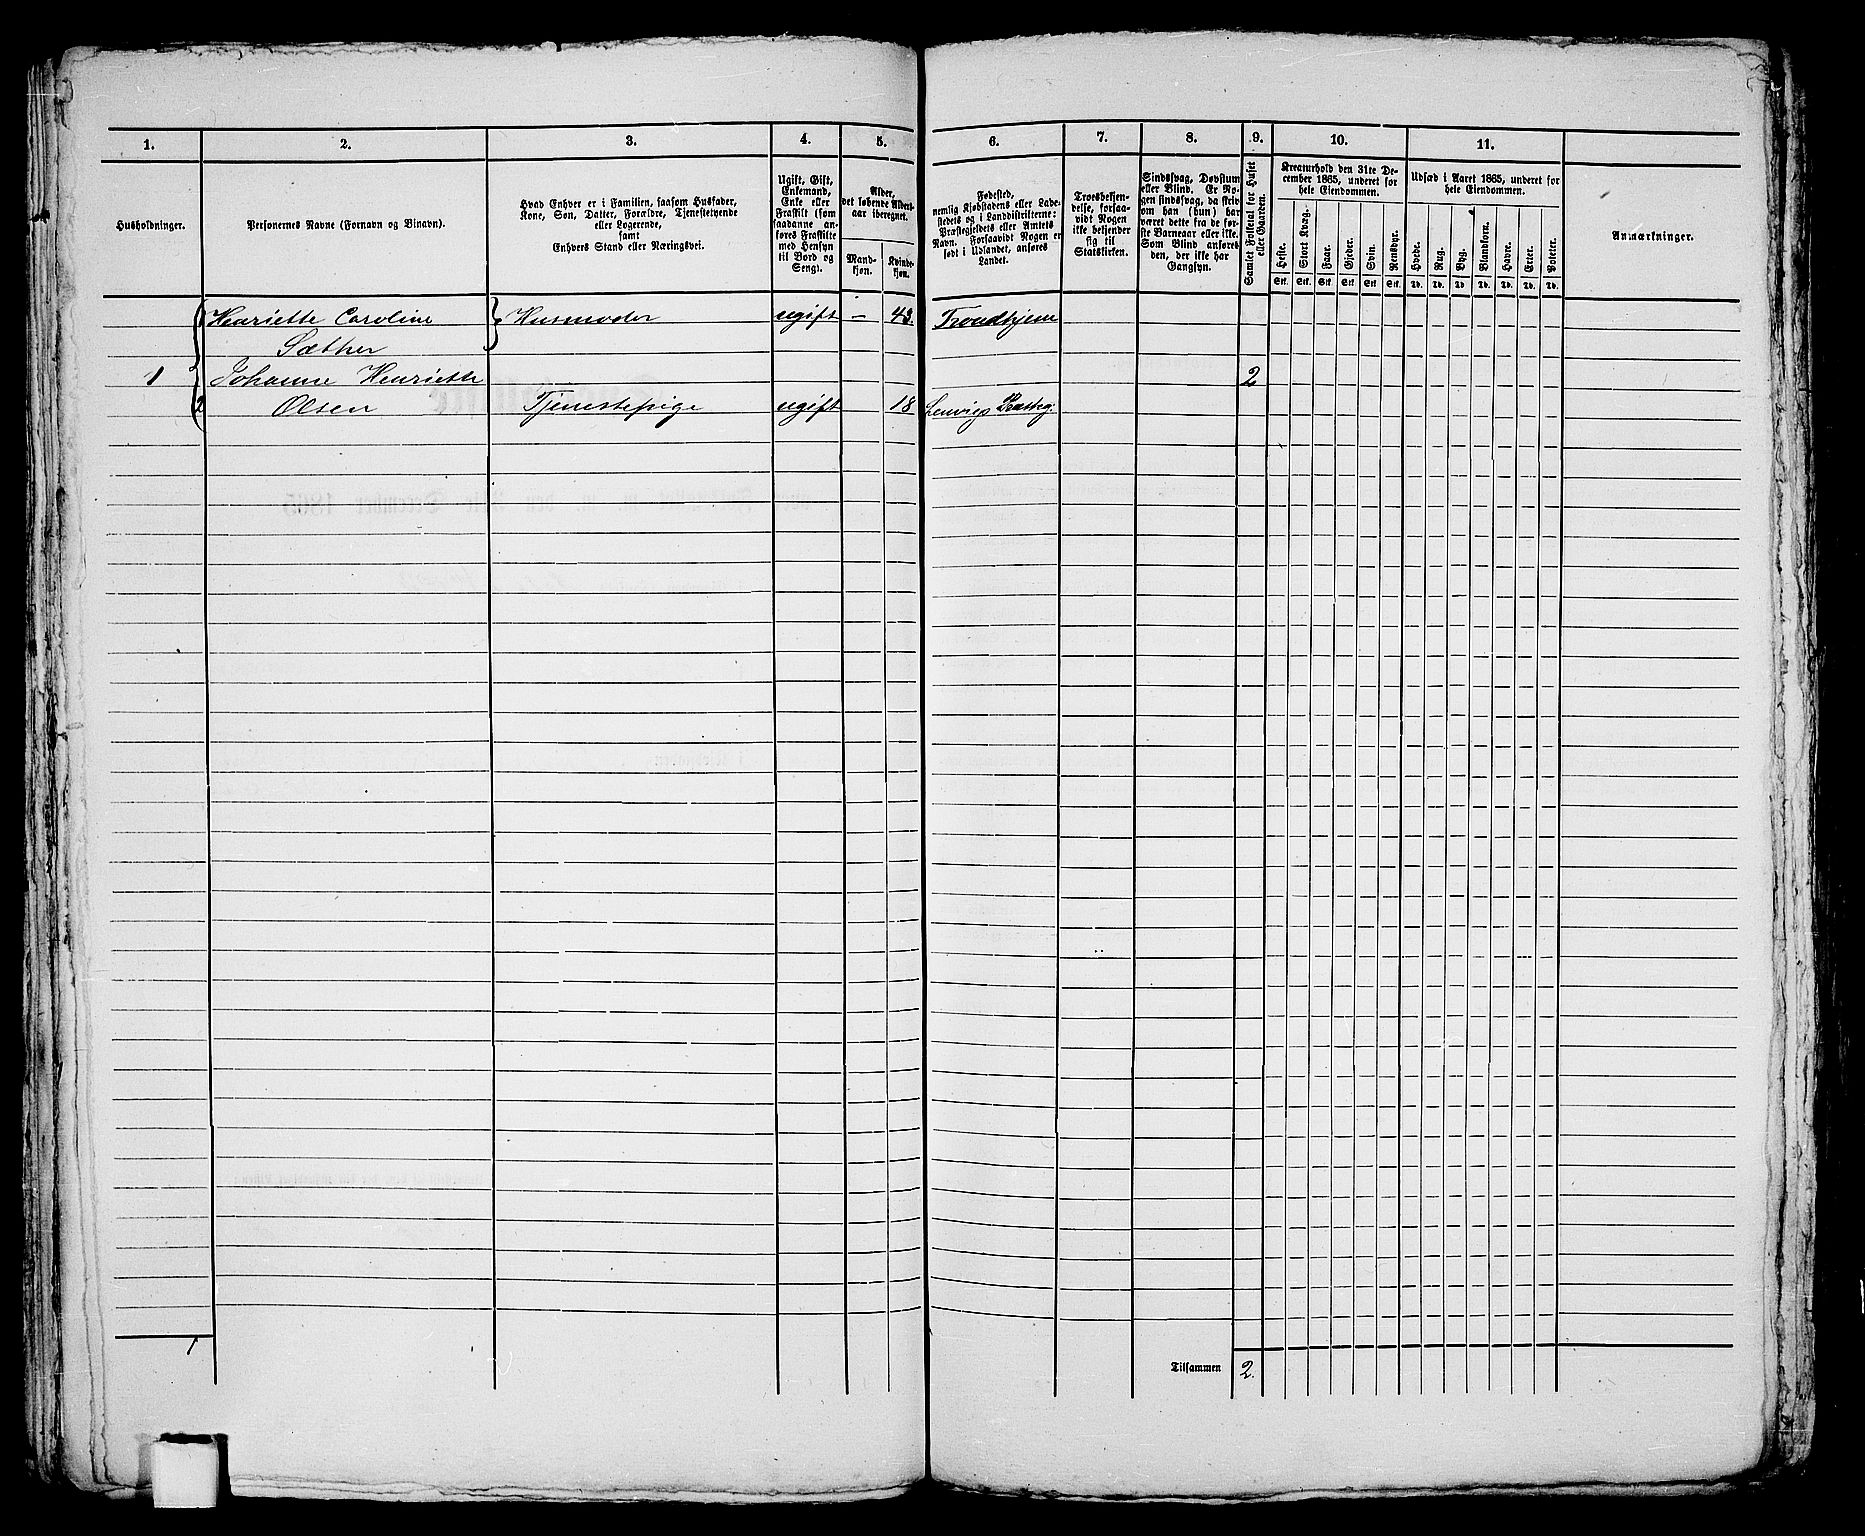 1. 2. 3. 4. 5. 6. 7. 8. 9. 10. 11.
Husholdninger.
Personernes Navne (Fornavn og Binavn).
Hvad Enhver er i Familien, saasom Husfader,
Kone, Søn, Datter, Forældre, Tjenestetyende
eller Logerende,
samt
Enhvers Stand eller Næringsvei.
Ugift, Gift,
Enkemand,
Enke eller
Fraskilt (som
saadanne an-
føres Fraskilte
med Hensyn
til Bord og
Seng).
Alder,
det løbende Alders-
aar iberegnet.
Mand-
kjøn.
Kvinde-
kjøn.
Fødested,
nemlig Kjøbstadens eller Lade-
stedets og i Landdistrikterne:
Præstegjeldets eller Amtets
Navn. Forsaavidt Nogen er
født i Udlandet, anføres
Landet.
Troesbekjen-
delse, forsaa-
vidt Nogen
ikke bekjender
sig til
Statskirken.
Sindssvag, Døvstum
eller Blind. Er No-
gen sindssvag, da skriv
om han (hun) har
været dette fra de før-
ste Barneaar eller ikke.
Som Blind anføres
den, der ikke har
Gangsyn.
Samlet Folketal for Huset
eller Gaarden.
Kreaturhold den 31te De-
cember 1865, underet for
hele Eiendommen.
Heste. Stort Kvæg. Faar. Gjeder. Svin. Rensdyr.
Stk. Stk. Stk. Stk. Stk. Stk.
Udsæd i Aaret 1865, underet for
hele Eiendommen.
Hvede. Rug. Byg. Blandkorn. Havre. Erter. Poteter.
Td. Td. Td. Td. Td. Td. Td.
Anmærkninger.
Henriette Caroline Husmoder ugift – 43. Trondhjem
Sæther
1 Johanne Henriette 2
2 Olsen Tjenestepige ugift 18 Lenvigs Præsteg.
1
Tilsammen 2.